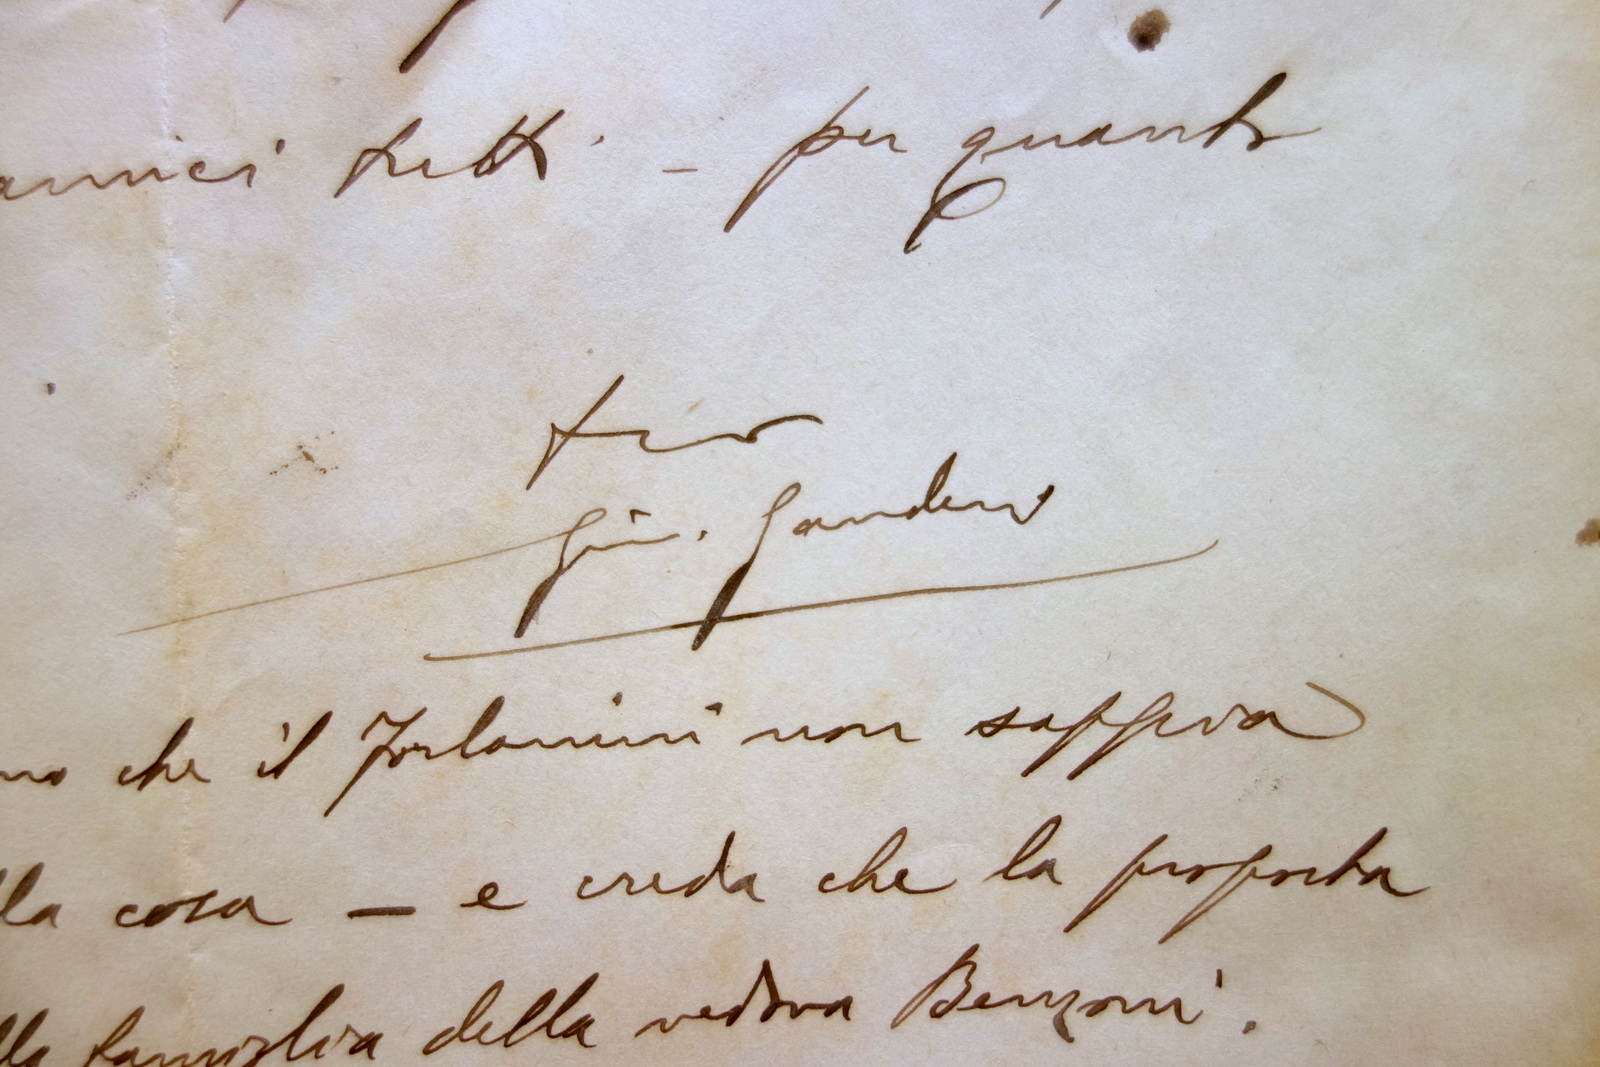 amici tutti - per quanto
tuo
Giu. Gandini
che il Forlanini non sappia
la cosa - e creda che la proposta
famiglia della vedova Benzoni.